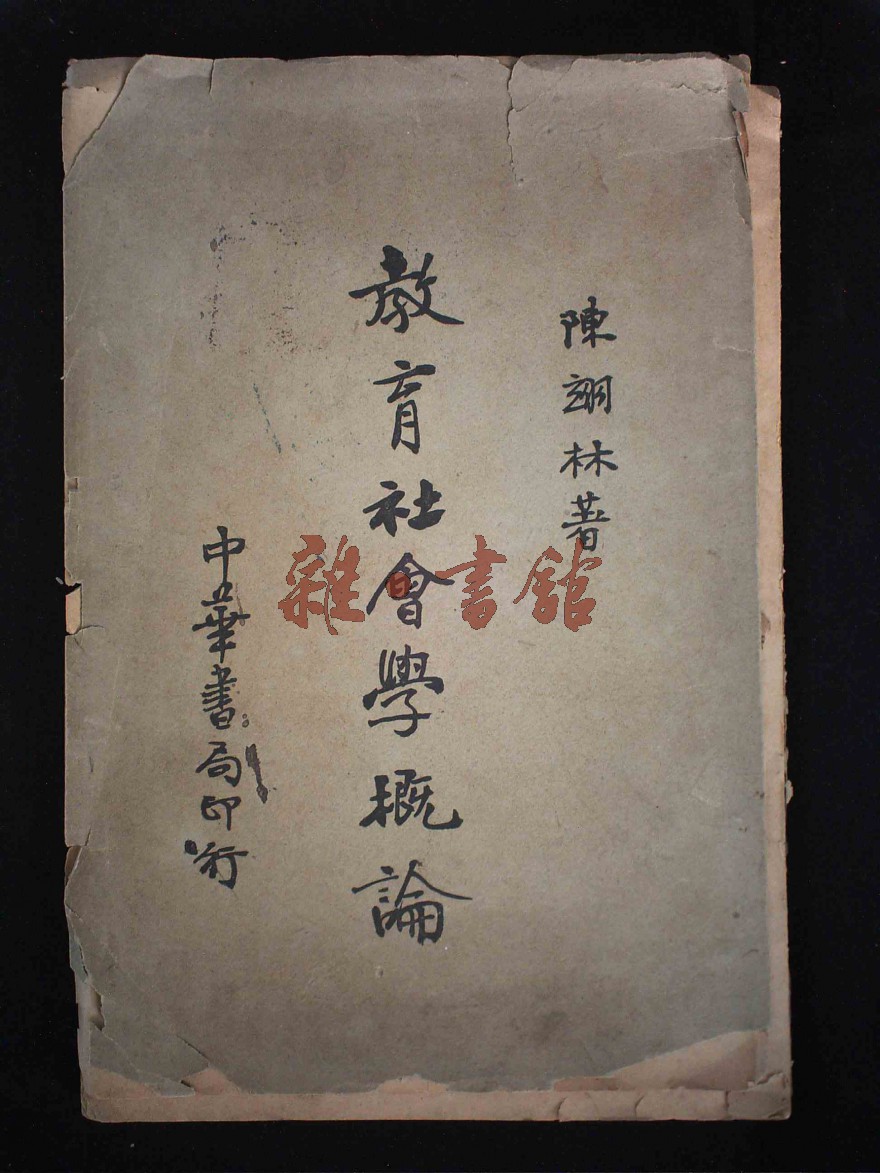 陳翊林著
教育社會學概論
中華書局印行
雜書館